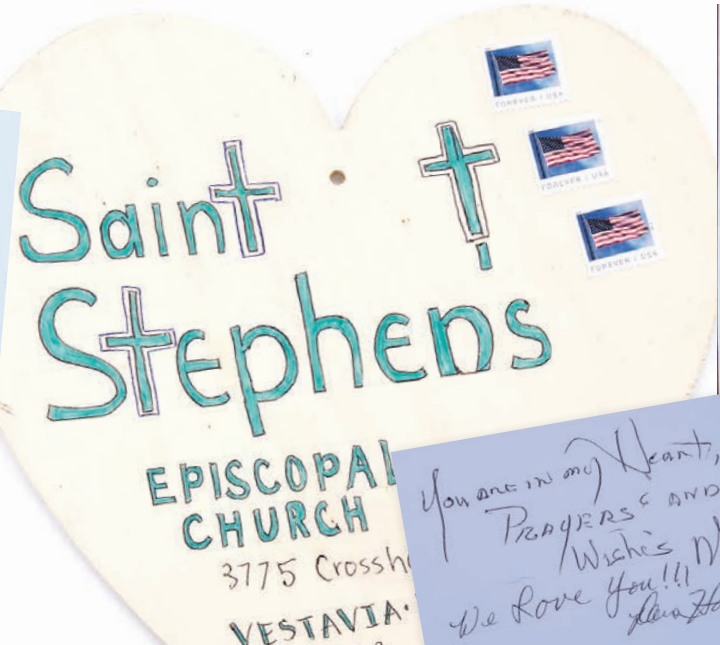 FOREVER / USA
FOREVER / USA
FOREVER / USA
Saint
Stephens
EPISCOPAL
CHURCH
3775 Crossh
VESTAVIA
You are in my Heart,
PRAYERS AND
Wishes
We Love You!!!